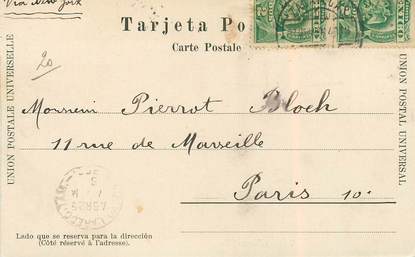 Via New York
Tarjeta Po
Carte Postale
UNION POSTALE UNIVERSELLE
UNION POSTAL UNIVERSAL
20
Monsieur Pierrot Bloch
11 rue de Marseille
Paris 10e
Lado que se reserva para la dirección
(Côté réservé à l'adresse).